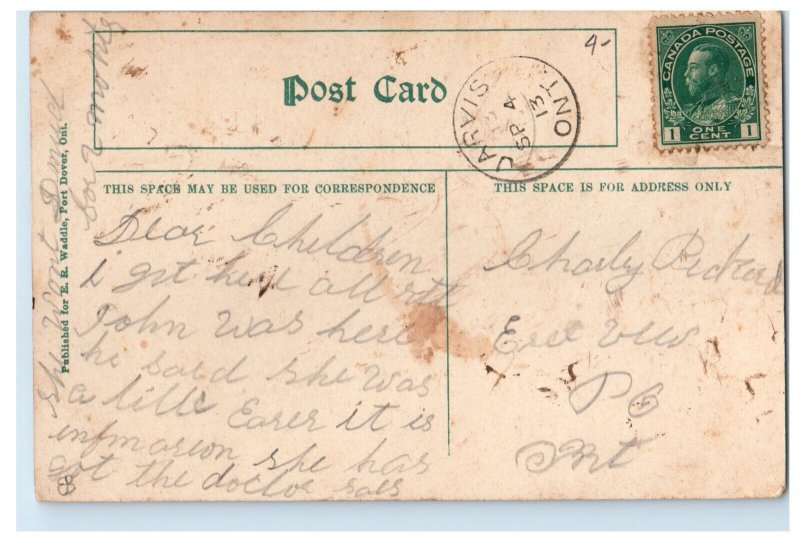 Post Card
JARVIS
SP 4
13
ONT.
CANADA POSTAGE
1 ONE CENT 1
4-
THIS SPACE MAY BE USED FOR CORRESPONDENCE
THIS SPACE IS FOR ADDRESS ONLY
Dear Children
i got here all rite
John was here
he said she was
a little Earer it is
infmarion she has
got the doctor sais
she wont Dmud
for 2 mons
Published for E. R. Waddle, Port Dover, Ont.
Charly
Erie view
PO
Ont